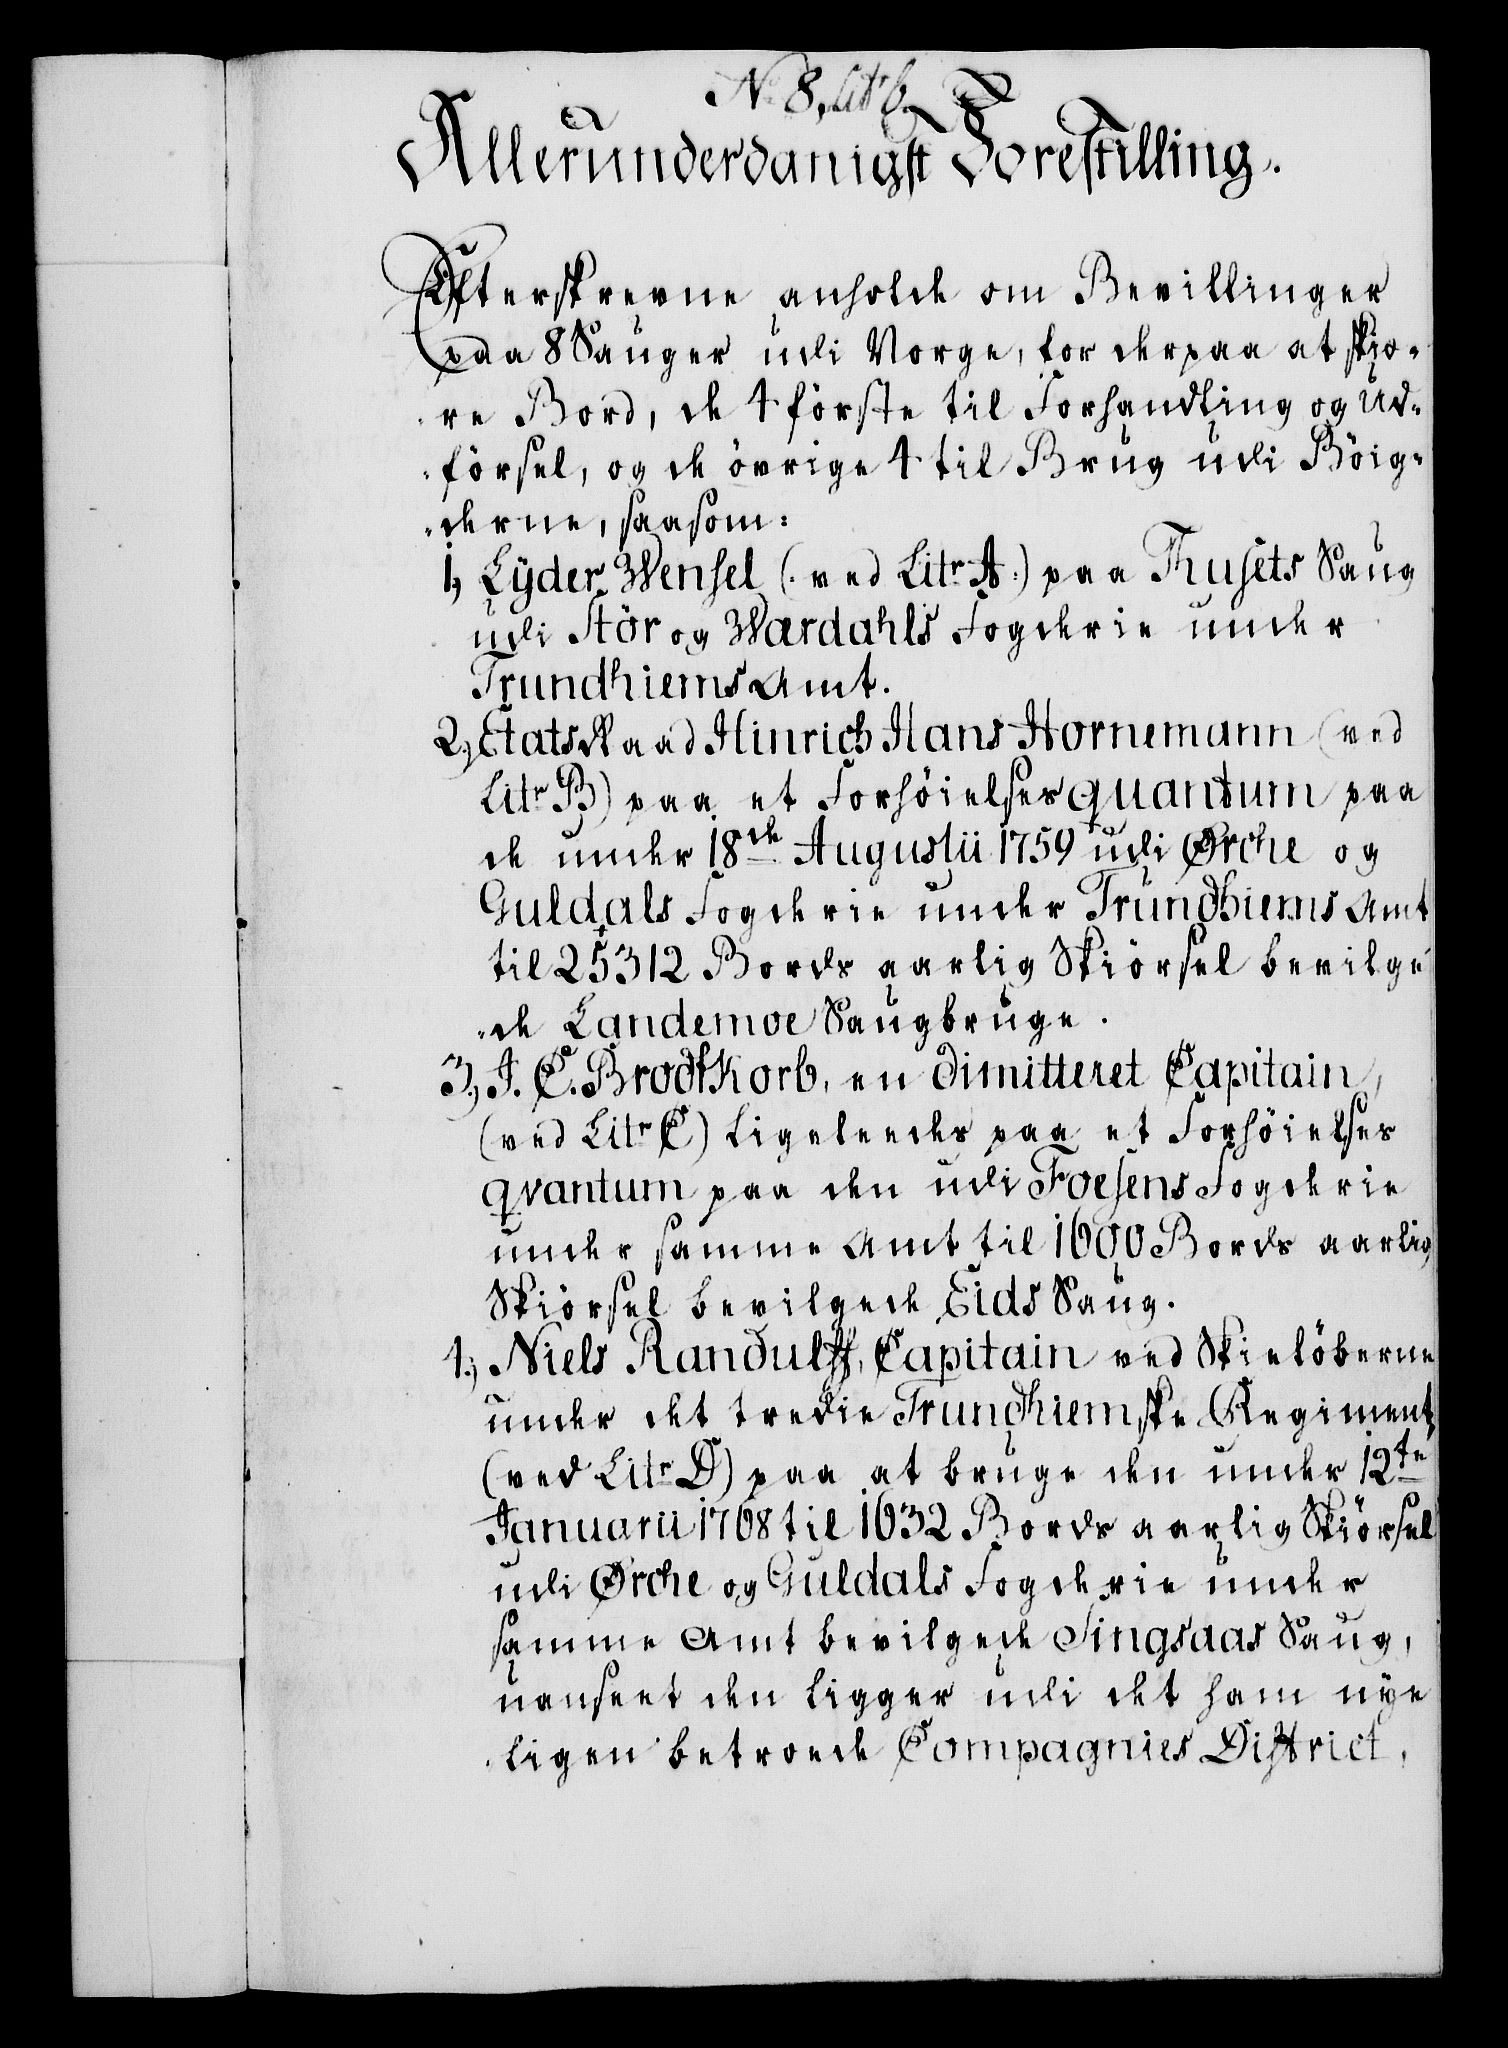 No 8, litr b.
Allerunderdanigst Forestilling.
Efterskrevne anholde om Bevillinger
paa 8 Sauger udi Norge, for derpaa at skiø-
re Bord, de 4 förste til Forhandling og Ud-
försel, og de övrige 4 til Brug udi Böig-
derne, saasom:
1, Lyder Wensel (: ved Litr A :) paa Thusets Saug
udi Stör og Wærdahls Fogderie under
Trundhiems Amt.
2, Etatsraad Hinrich Hans Hornemann (ved
Litr B) paa et Forhöielses quantum paa
de under 18de Augustii 1759 udi Ørche og
Guldals Fogderie under Trundhiems Amt
til 25312 Bords aarlig Skiörsel bevilge
de Landemoe Saugbruge.
3, J. C. Brodtkorb, en dimitteret Capitain,
(ved Litr C) ligeleedes paa et Forhöielses
qvantum paa den udi Foesens Fogderie
under samme Amt til 1600 Bords aarlig
Skiörsel bevilgede Eids Saug.
4, Niels Randulff, Capitain ved Skielöberne
under det tredie Trundhiemske Regiment,
(ved Litr D) paa at bruge den under 12te
Januarii 1768 til 1632 Bords aarlig Skiörsel
udi Ørche og Guldals Fogderie under
samme Amt bevilgede Singsaas Saug,
uanseet den ligger udi det ham nye
ligen betroede Compagnies District,